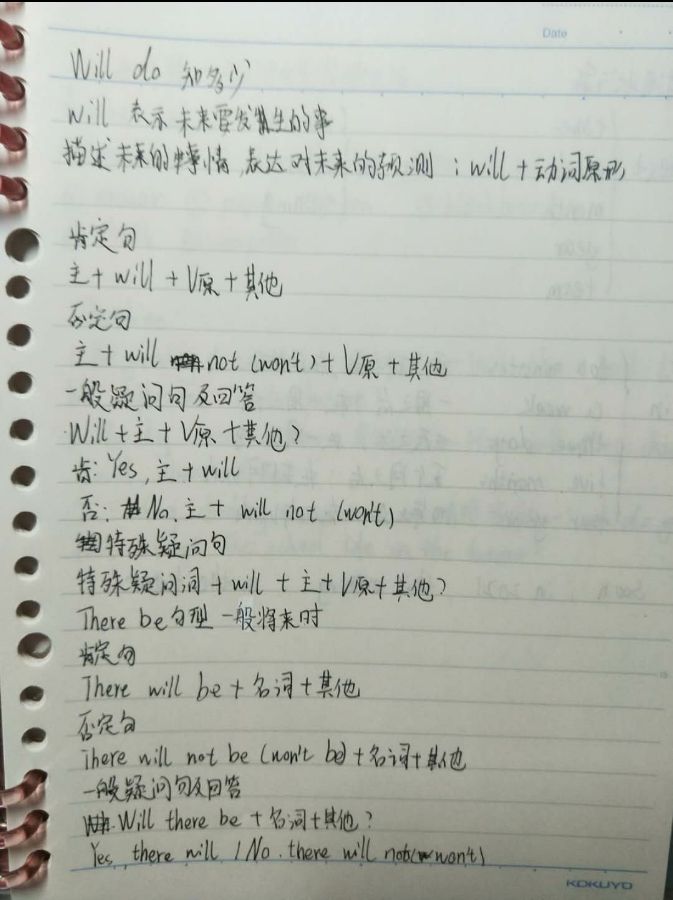 Date
Will do 知多少
Will 表示未来要发生的事
描述未来的事情,表达对未来的预测:will+动词原形
肯定句
主+will+V原+其他
否定句
主+will not (won't)+V原+其他
一般疑问句及回答
Will+主+V原+其他?
肯:Yes,主+will
否:No.主+will not (won't)
特殊疑问句
特殊疑问词+will+主+V原+其他?
There be句型一般将来时
肯定句
There will be+名词+其他
否定句
There will not be (won't be)+名词+其他
一般疑问句及回答
Will there be+名词+其他?
Yes, there will / No. there will not(won't)
KOKUYO